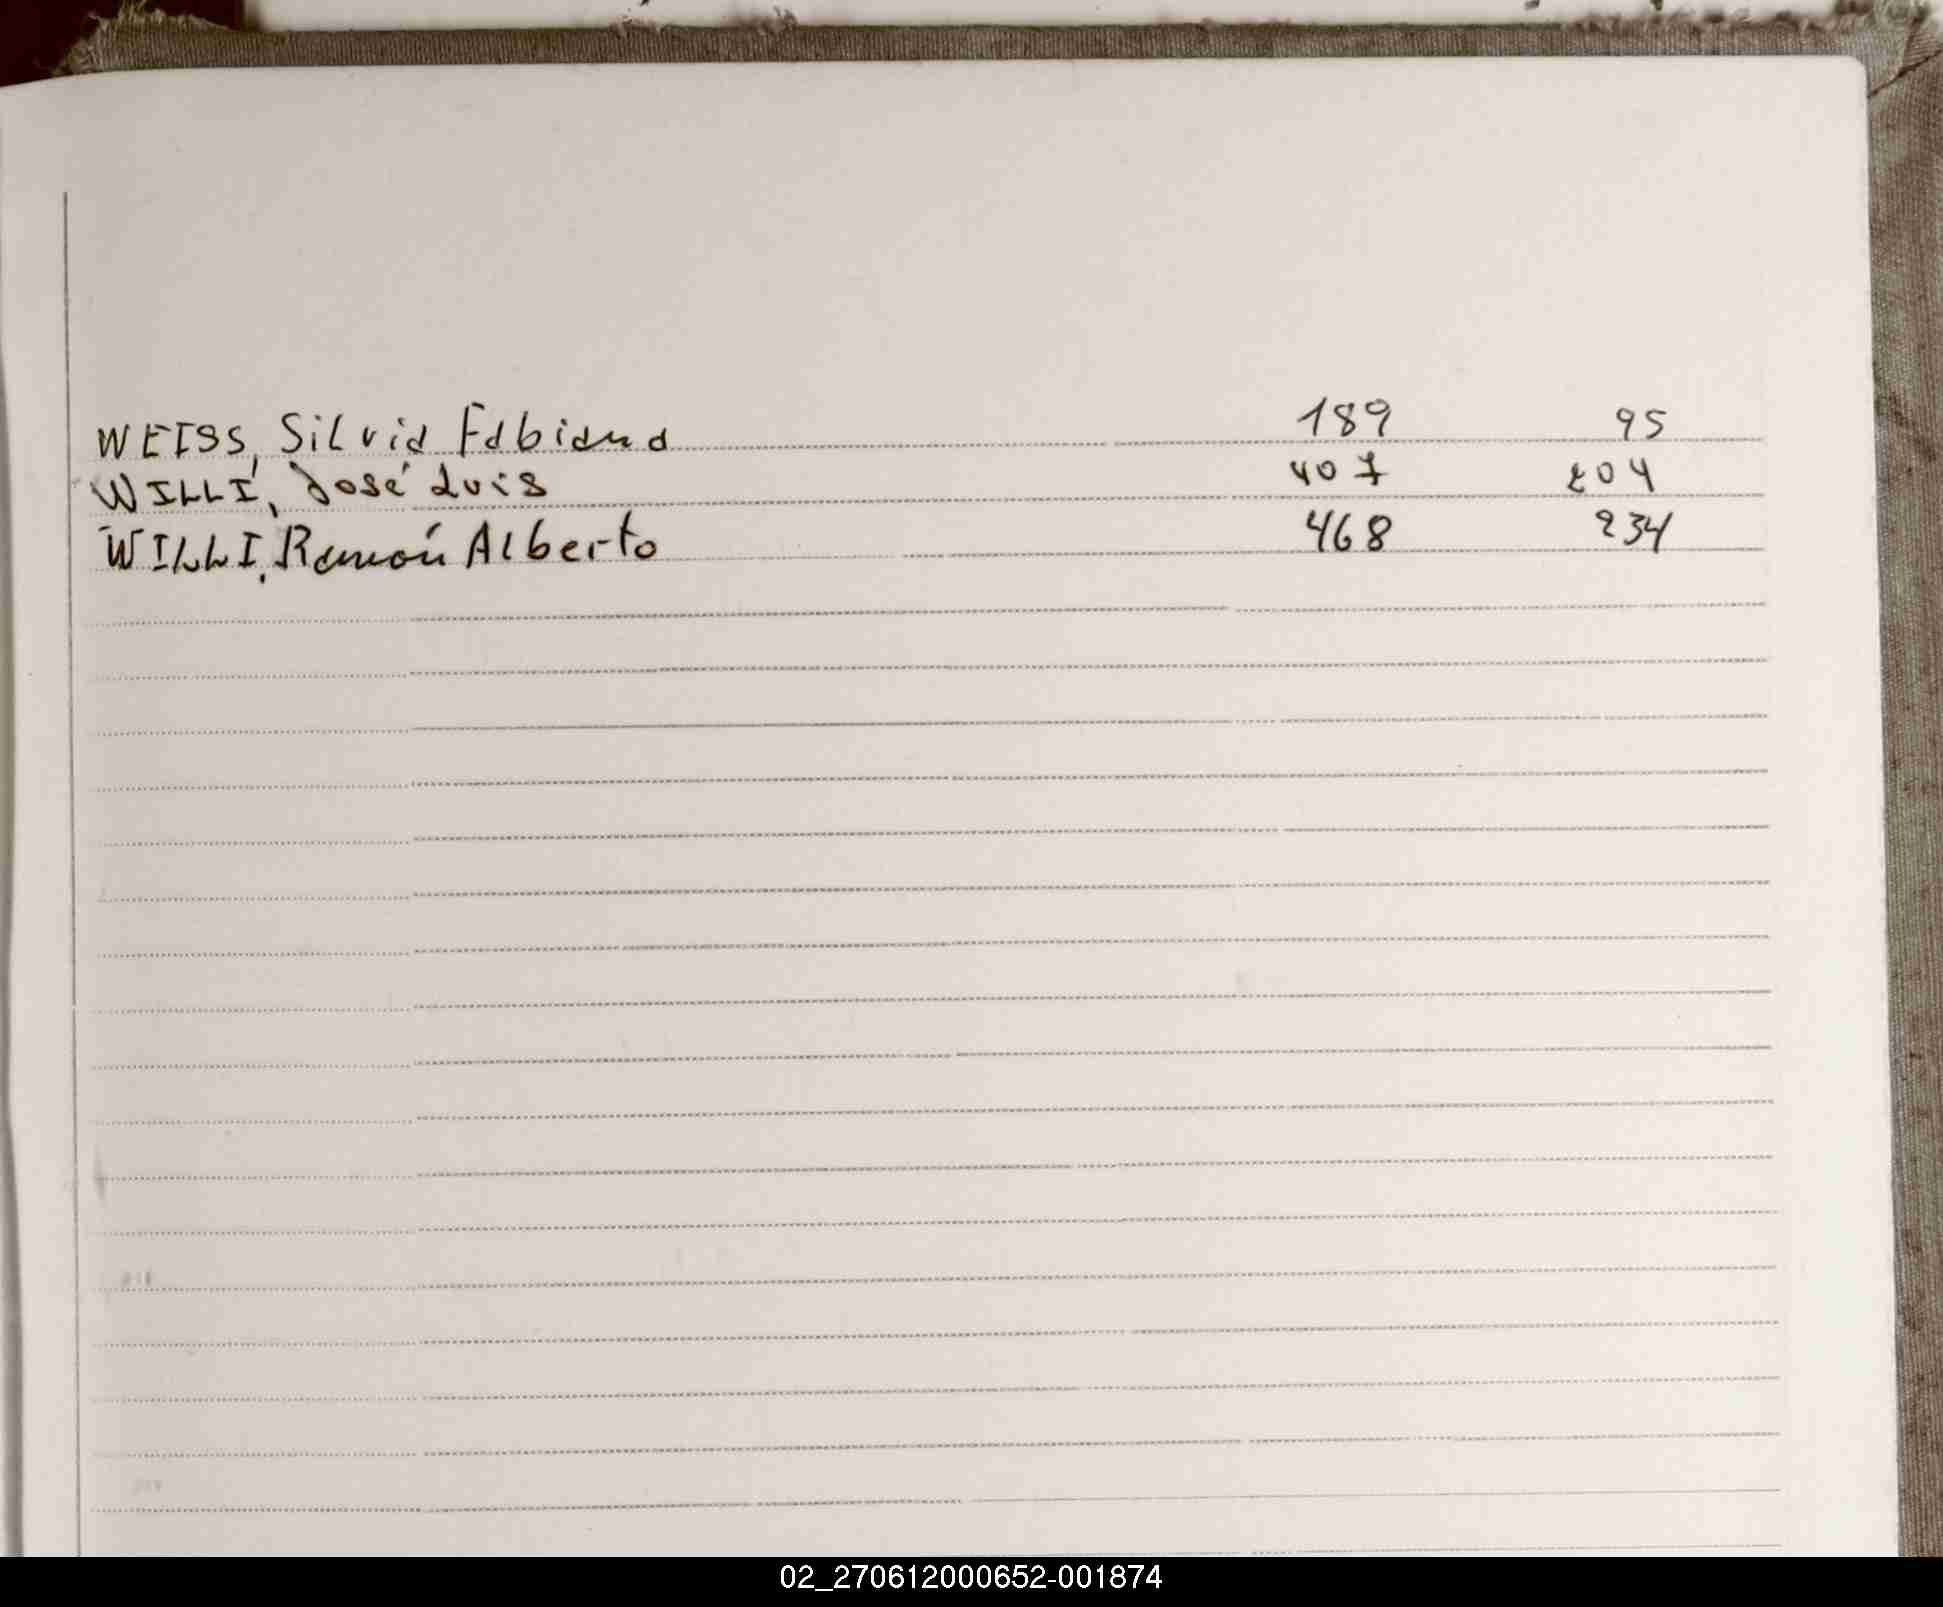 WEISS, Silvia Fabiana 189 95
WILLI, José Luis 407 204
WILLI, Ramón Alberto 468 234
02_270612000652-001874